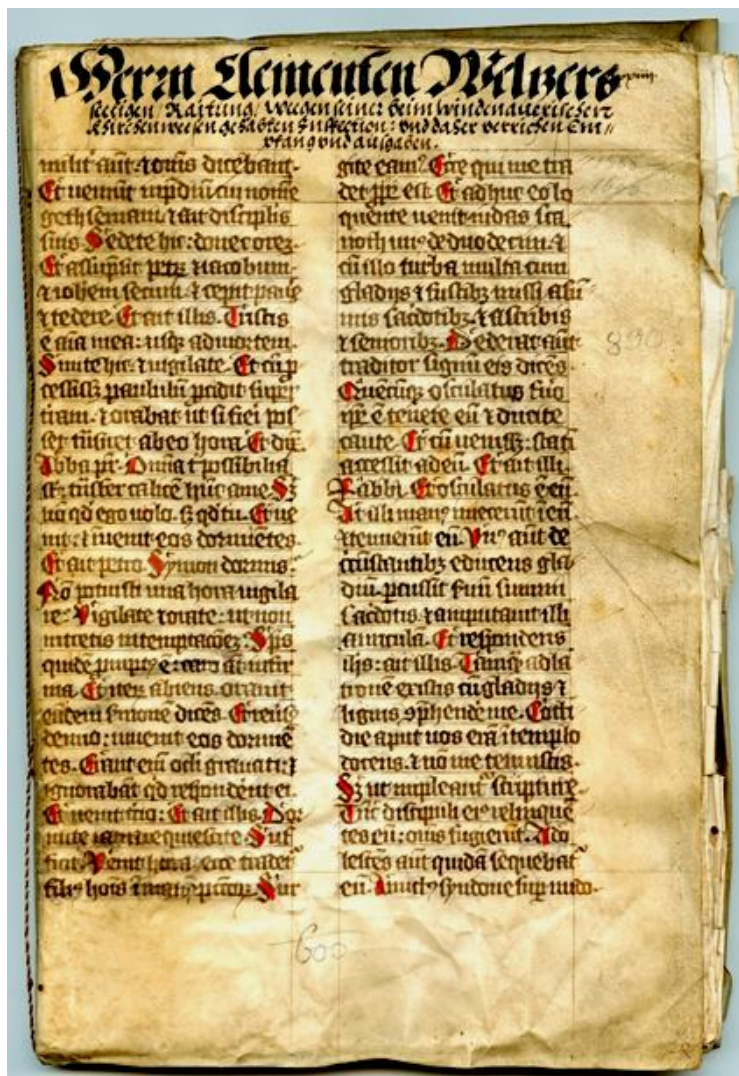 Herrn Clementen Welzers
seeligen Raittung, Weegen seiner beim Windenauerischen
Khirchenweesen gehabten Inspection: und daher verrichen Em-
pfang und ausgaben.
milit aūt ⁊ om̄s dicebant.
Et ueniūt in p̄diū cui nome
gethsemani. ⁊ ait discip̄lis
suis Sedete hic: donec orez.
Et assūpsit petr̄ ⁊ iacobum.
⁊ ioh̄em secum. ⁊ cepit paue
⁊ tedere. Et ait illis. Tristis
ē aīa mea: usq; ad mortem.
Sustinete hic. ⁊ uigilate. Et cū p
cessiss; paululū p̄cidit super
tram. ⁊ orabat ut si fieri pos
set t̄nsiret ab eo hora. Et dix̄.
Abba pr̄. Om̄ia t̄ possibilia
st̄. t̄nsfer calicē hūc a me. S;
nō qd̄ ego uolo. s; qd̄ tu. Et ue
nit. ⁊ inuenit eos dormiētes.
Et ait petro. Symon dormis.
Nō potuisti una hora uigila
re. Vigilate ⁊ orate: ut non
intretis in temptacōez. Sp̄s
quidē prōpt⁹ ē: caro aūt infir
ma. Et iter̄ abiens. orauit
eundem s̄monē dicēs. Et reūs⁹
denuo: inuenit eos dormiē
tes. Erant eni oc̄li grauati: ⁊
ignorabāt qd̄ respondēnt ei.
Et uenit t̄cio: Et ait illis. Dor
mite iam ⁊ requiescite. Suf
ficit. Venit hora. ecce tradet̄
filī⁹ hoīs ī man⁹ p̄ctor̄. Sur
gite eam⁹. Ecce qui me tra
det ꝓpe est. Et adhuc eo lo
quente uenit iudas sca
rioth un⁹ de duodecim. ⁊
cū illo turba multa cum
gladijs ⁊ fustib; missi a sū
mis sac̄dotib; ⁊ a scribis
⁊ seniorib;. Dederat aūt
traditor signū eis dicēs.
Quēcūq; osculatus fūo
ip̄e ē tenete eū ⁊ ducite
caute. Et cū ueniss; statī
accessit ad eū. Et ait illi.
Rabbi. Et osculatus ē eū.
At illi man⁹ iniecerūt ī eū.
⁊ tenuerūt eū. Vn⁹ aūt de
circūstantib; educens gla
diū. ꝑcussit s̄uū summi
sac̄dotis. ⁊ amputauit illi
auricula. Et respondens
ih̄s: ait illis. Tamq̄ ad la
tronē existis cū gladijs ⁊
lignis ꝯphendē me. Cotti
die aput uos erā ī templo
docens. ⁊ nō me tenuistis.
S; ut impleant̄ scripture.
Tūc discipuli ei⁹ relinquē
tes eū: om̄s fugerūt. Ado
lescēs aūt quidā sequebat̄
eū. Amict⁹ syndone sup̄ nudo.
890
600